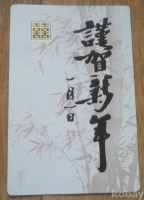 謹賀新年
一月一日
囍
kobay